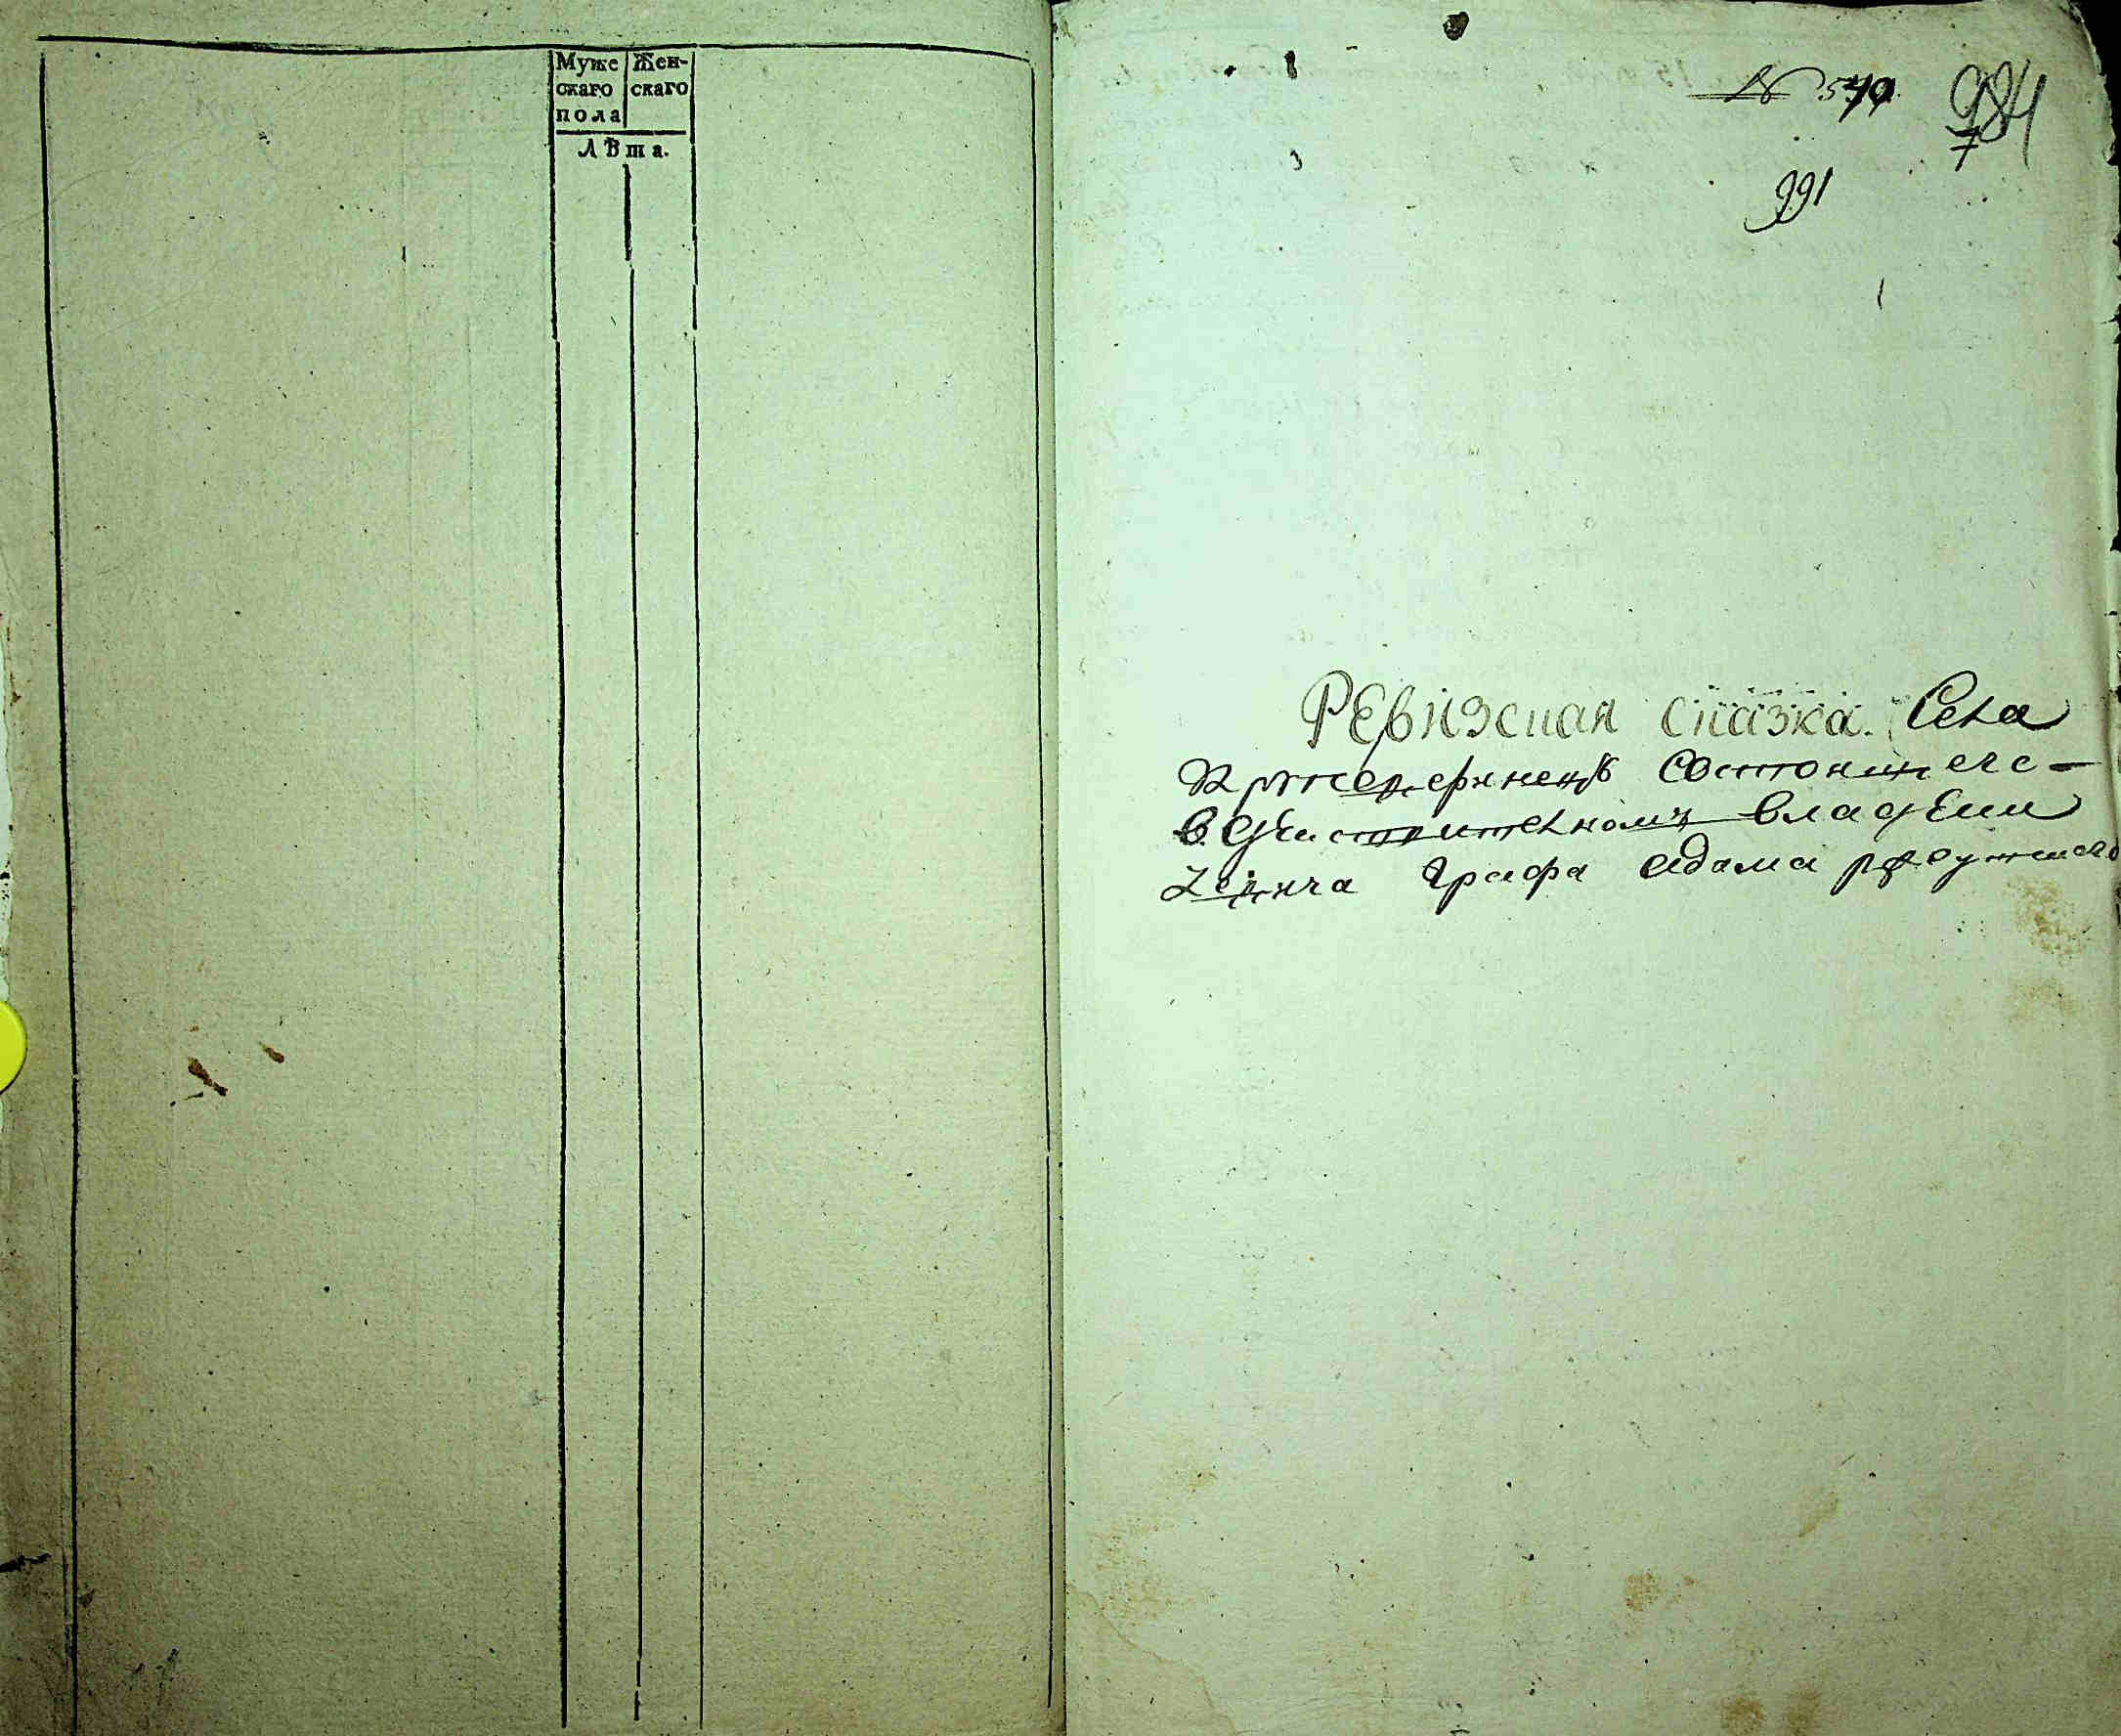 Муже
скаго
пола
Жен-
скаго
Лѣта.
№ 570
984
7
991
Ревизская сказка. Села
состоящего
в действительномъ владении
графа адама